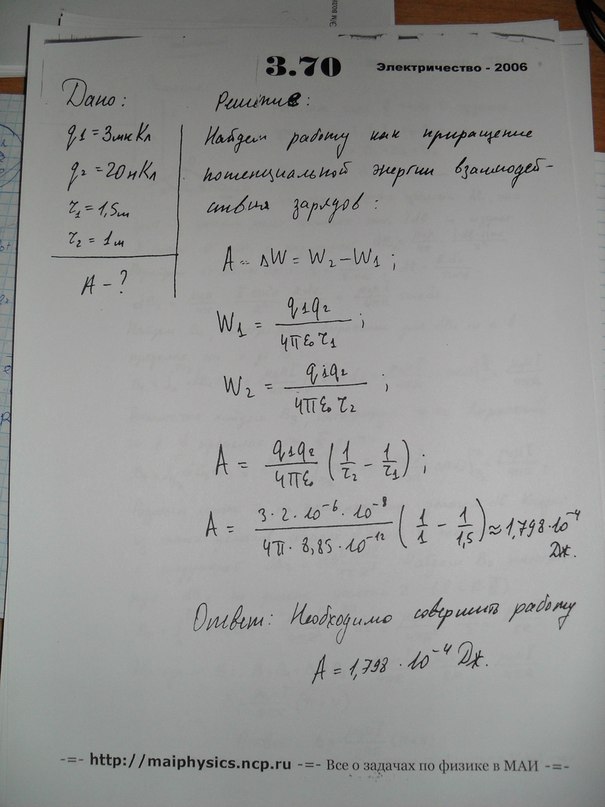 3.70 Электричество - 2006
Дано:
q1 = 3мкКл
q2 = 20нКл
r1 = 1,5м
r2 = 1м
A - ?
Решение:
Найдем работу как приращение
потенциальной энергии взаимодей-
ствия зарядов:
A = ΔW = W2 - W1 ;
W1 = q1q2 / 4πε0r1 ;
W2 = q1q2 / 4πε0r2 ;
A = q1q2 / 4πε0 (1/r2 - 1/r1) ;
A = 3·2·10⁻⁶·10⁻⁸ / 4π·8,85·10⁻¹² (1/1 - 1/1,5) ≈ 1,798·10⁻⁴
Дж.
Ответ: Необходимо совершить работу
A = 1,798·10⁻⁴ Дж.
-=- http://maiphysics.ncp.ru -=- Все о задачах по физике в МАИ -=-